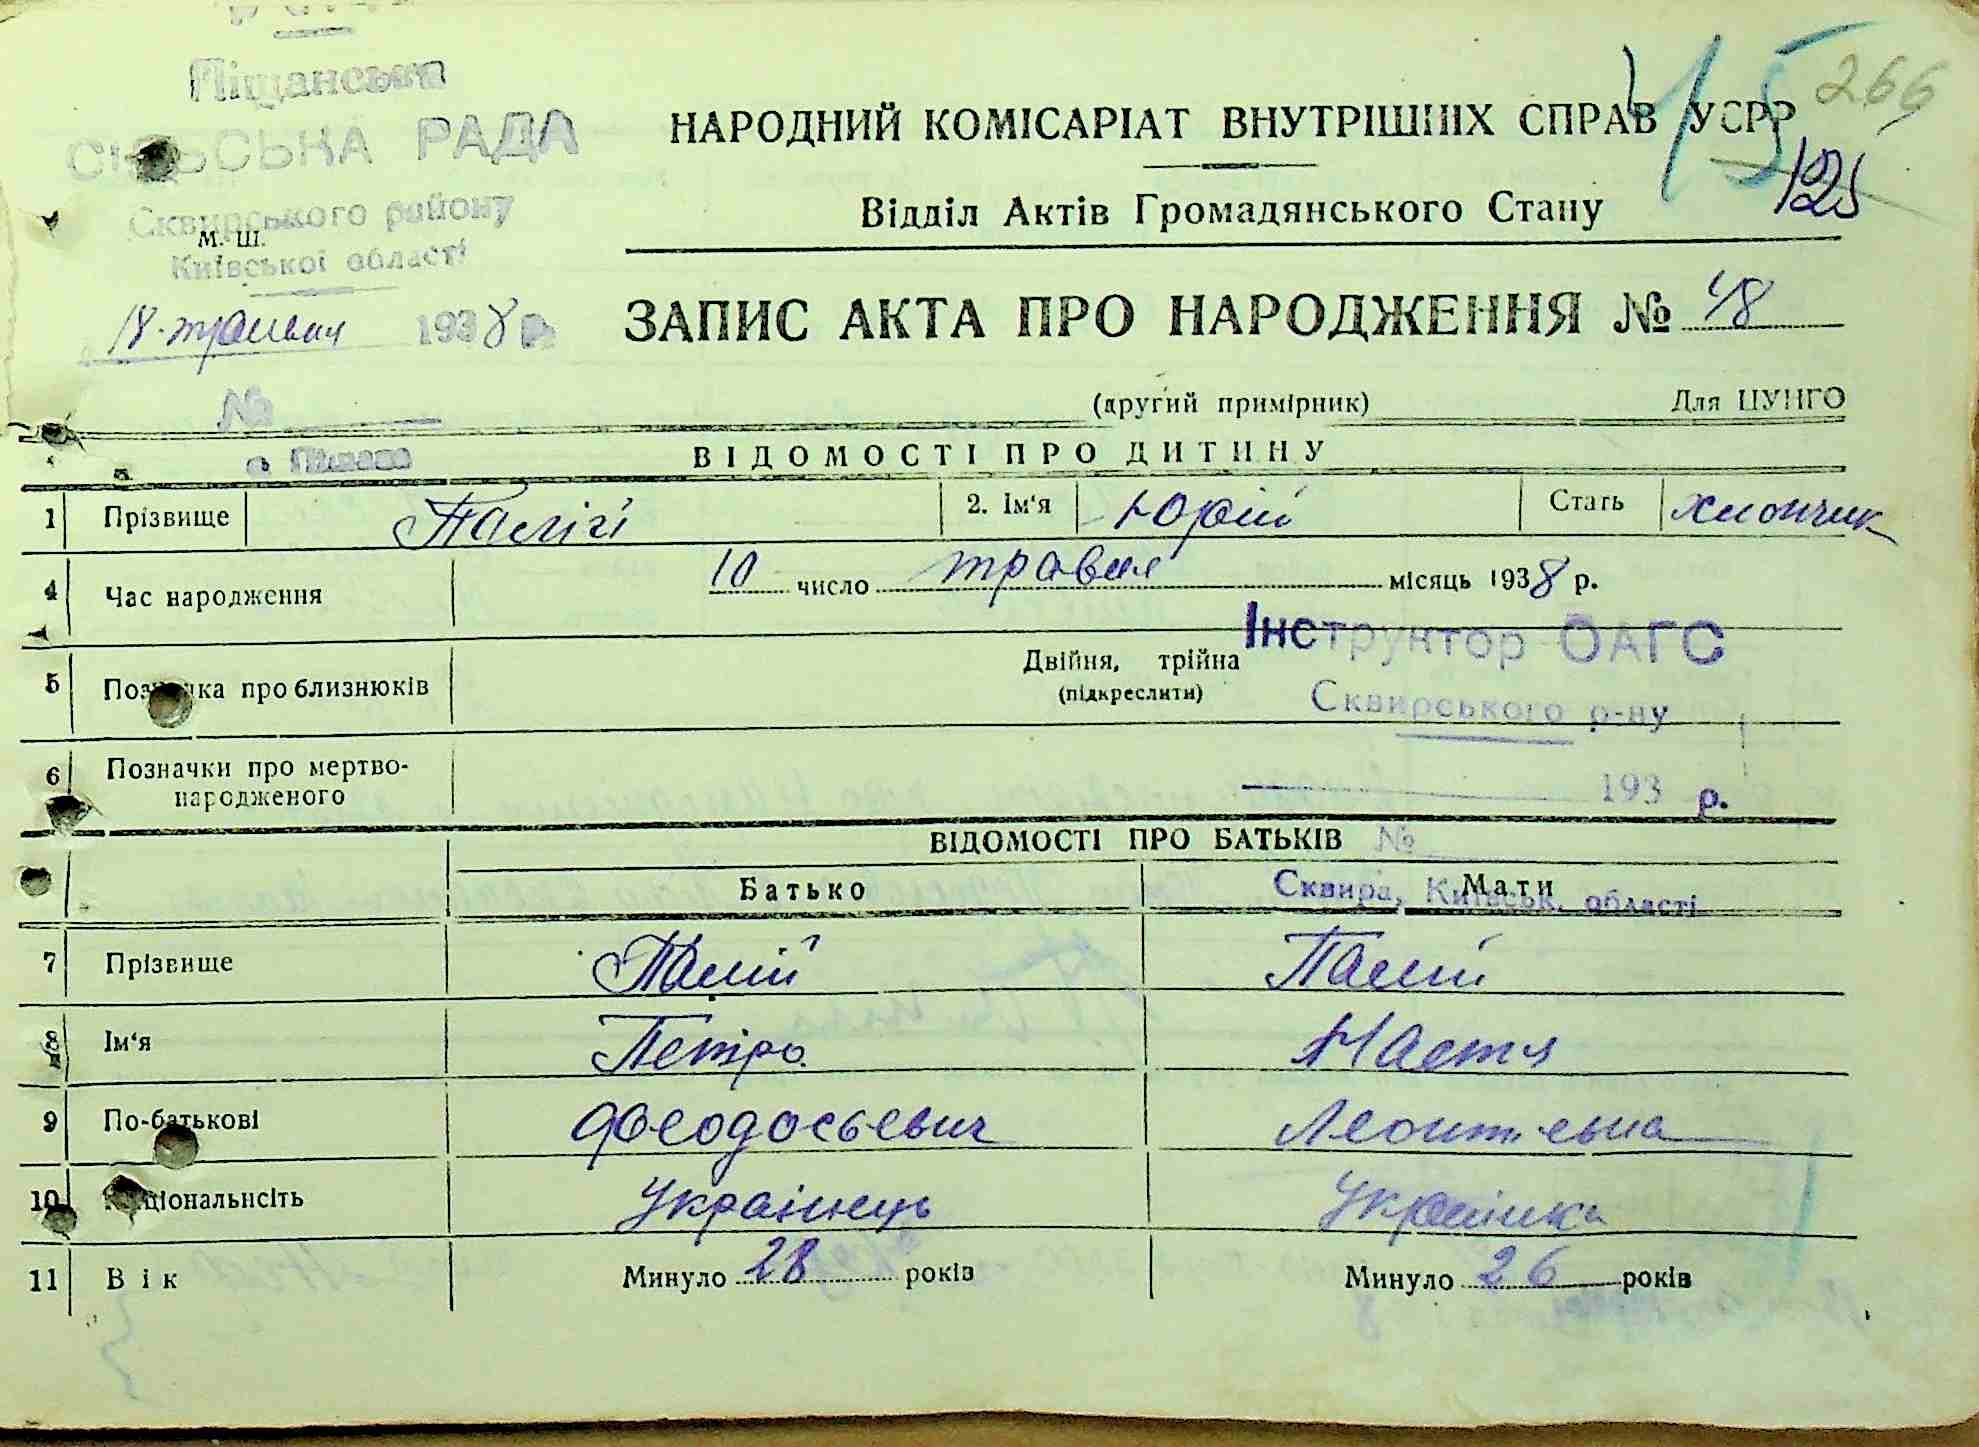 Піщанська
СІЛЬСЬКА РАДА
Сквирського району
М. Ш.
Київської області
18 травня 1938 р.
№
НАРОДНИЙ КОМІСАРІАТ ВНУТРІШНІХ СПРАВ УСРР
266
45
125
Відділ Актів Громадянського Стану
ЗАПИС АКТА ПРО НАРОДЖЕННЯ № 48
(другий примірник) Для ЦУНГО
ВІДОМОСТІ ПРО ДИТИНУ
1 Прізвище Палій 2. Ім'я Юрій Стать хлопчик
4 Час народження 10 число травня місяць 1938 р.
Інструктор ОАГС
5 Позначка про близнюків Двійня, трійна
(підкреслити)
Сквирського р-ну
6 Позначки про мертво-
народженого
193 р.
ВІДОМОСТІ ПРО БАТЬКІВ №
Батько Мати
Сквира, Київськ. області
7 Прізвище Палій Палій
8 Ім'я Петро Настя
9 По-батькові Феодосьевич Леонтьевна
10 Національність Українець Українка
11 Вік Минуло 28 років Минуло 26 років